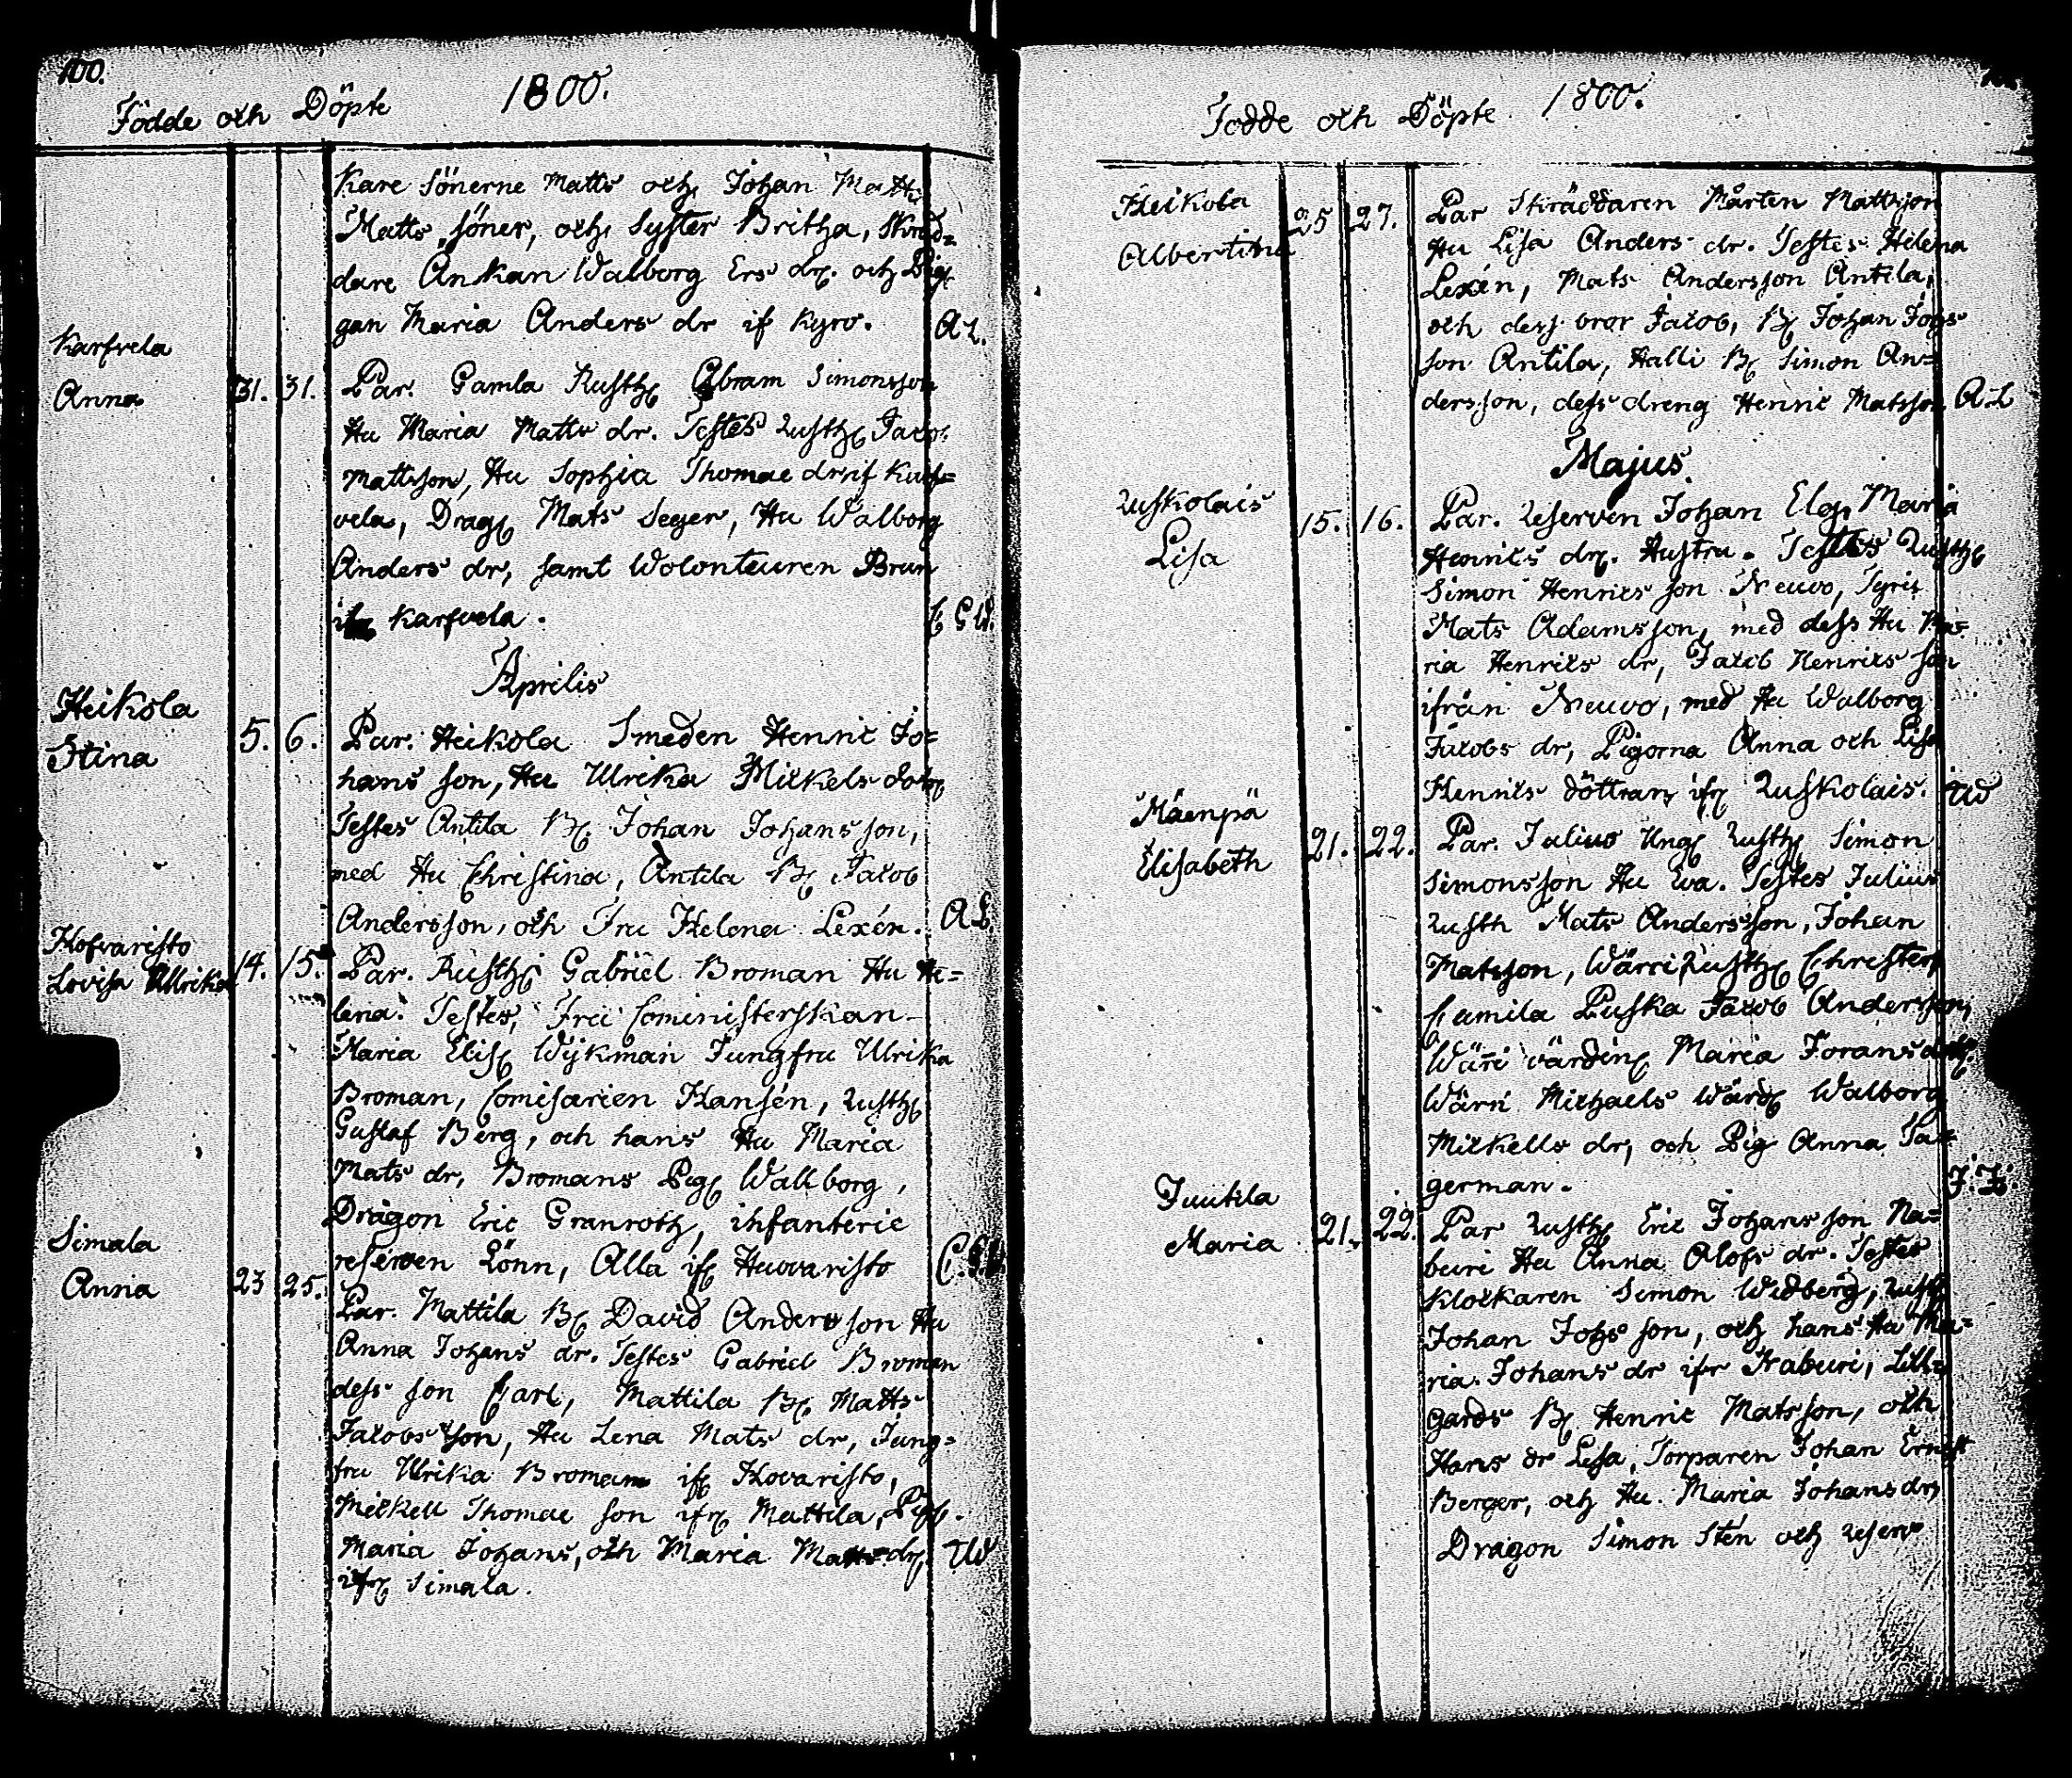 100.
Födde och Döpte 1800.
Kare Sönerne Matts och Johan Matts
Matts söner, och Syster Britha, Skräd=
dare Ankan Walborg Ers dr. och Pig
gan Maria Anders dr if Kyro. A L.
Karfvela
Anna 31. 31. Par. Gamla Rusth Abram Simonsson
Hu Maria Matts dr. Testes Rusth Jacob
Mattsson, Hu Sophia Thomae dr if Karf=
vela, Drag Mats Seger, Hu Walborg
Anders dr, samt Wolonteuren Brun
if Karfvela. C G W.
Aprilis
Heikola
Stina 5. 6. Par. Heikola Smeden Henric Jo=
hans son, Hu Ulrika Mickels dotr
Testes Antila B Johan Johansson,
med Hu Christina, Antila B Jacob
Andersson, och Fru Helena Lexén. A L
Hofvaristo
Lovisa Ullrika 14. 15. Par. Rusth Gabriel Broman Hu He=
lena. Testes, Fru Cministerskan
Maria Elis Wijkman Jungfru Ulrika
Broman, Comisarien Hansén, Rusth
Gustaf Berg, och hans Hu Maria
Mats dr, Bromans Pig Wallborg,
Dragon Eric Granroth, infanterie
reserven Lönn, Alla if Huovaristo
Simala
Anna 23 25. Par. Mattila B David Andersson Hu
Anna Johans dr. Testes Gabriel Broman
dess son Carl, Mattila B Matts
Jacobs son, Hu Lena Mats dr, Jung=
fru Ulrika Broman if Hovaristo,
Mickell Thomae son ifr Mattila, Pig.
Maria Johans, och Maria Matts dr. TW
ifr Simala.
Födde och Döpte 1800.
Heikola
Albertina 25 27. Par Skräddaren Mårten Mattsson
Hu Lisa Anders dr. Testes Helena
Lexén, Mats Andersson Antila,
och dess bror Jacob, B Johan Johs
son Antila, Halli B Simon An=
dersson, dess dreng Henric Matsson A L
Majus.
Ruskolais
Lisa 15. 16. Par. Reserven Johan Elg, Maria
Henrics dr. Hustru. Testes Rusth
Simon Henrics son Neuvo,
Mats Adamsson, med dess Hu Ma=
ria Henrics dr, Jacob Henrics son
ifrån Neuvo, med Hu Walborg
Jacobs dr, Pigorna Anna och Lisa
Henrics döttrar ifr Ruskolais. TW
Mäenpä
Elisabeth 21. 22. Par. Julius Ung Rusth Simon
Simonsson Hu Eva. Testes Julius
Rusth Mats Andersson, Johan
Matsson, Wärri Rusth Christer,
Gamila Puska Jacob Andersson,
Wärri värdin Maria Jorans dotr
Wärri Michaels Wärd Walborg
Mickells dr, och Pig Anna Ta=
german.
Juutila
Maria 21. 22. Par Rusth Eric Johansson Na=
buri Hu Anna Alofs dr. Testes
Klockaren Simon Widberg, Rusth
Johan Johs son, och hans Hu Ma=
ria Johans dr ifr Naburi, Lill=
gårds B Henric Matsson, och
Hans dr Lisa, Torparen Johan Ernst
Berger, och Hu. Maria Johans dr,
Dragon Simon Sten och Reserv